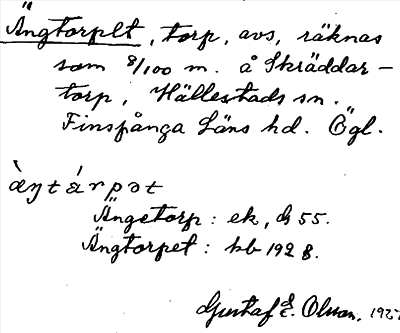 Ängtorpet, torp, avs, räknas
som 8/100 m. å Skräddar-
torp, Hällestads sn.
Finspånga Läns hd. Ögl.
ὰŋtάrpət
Ängetorp: ek, ds 55.
Ängtorpet: kb 1928.
Gustaf E. Olsson. 1927